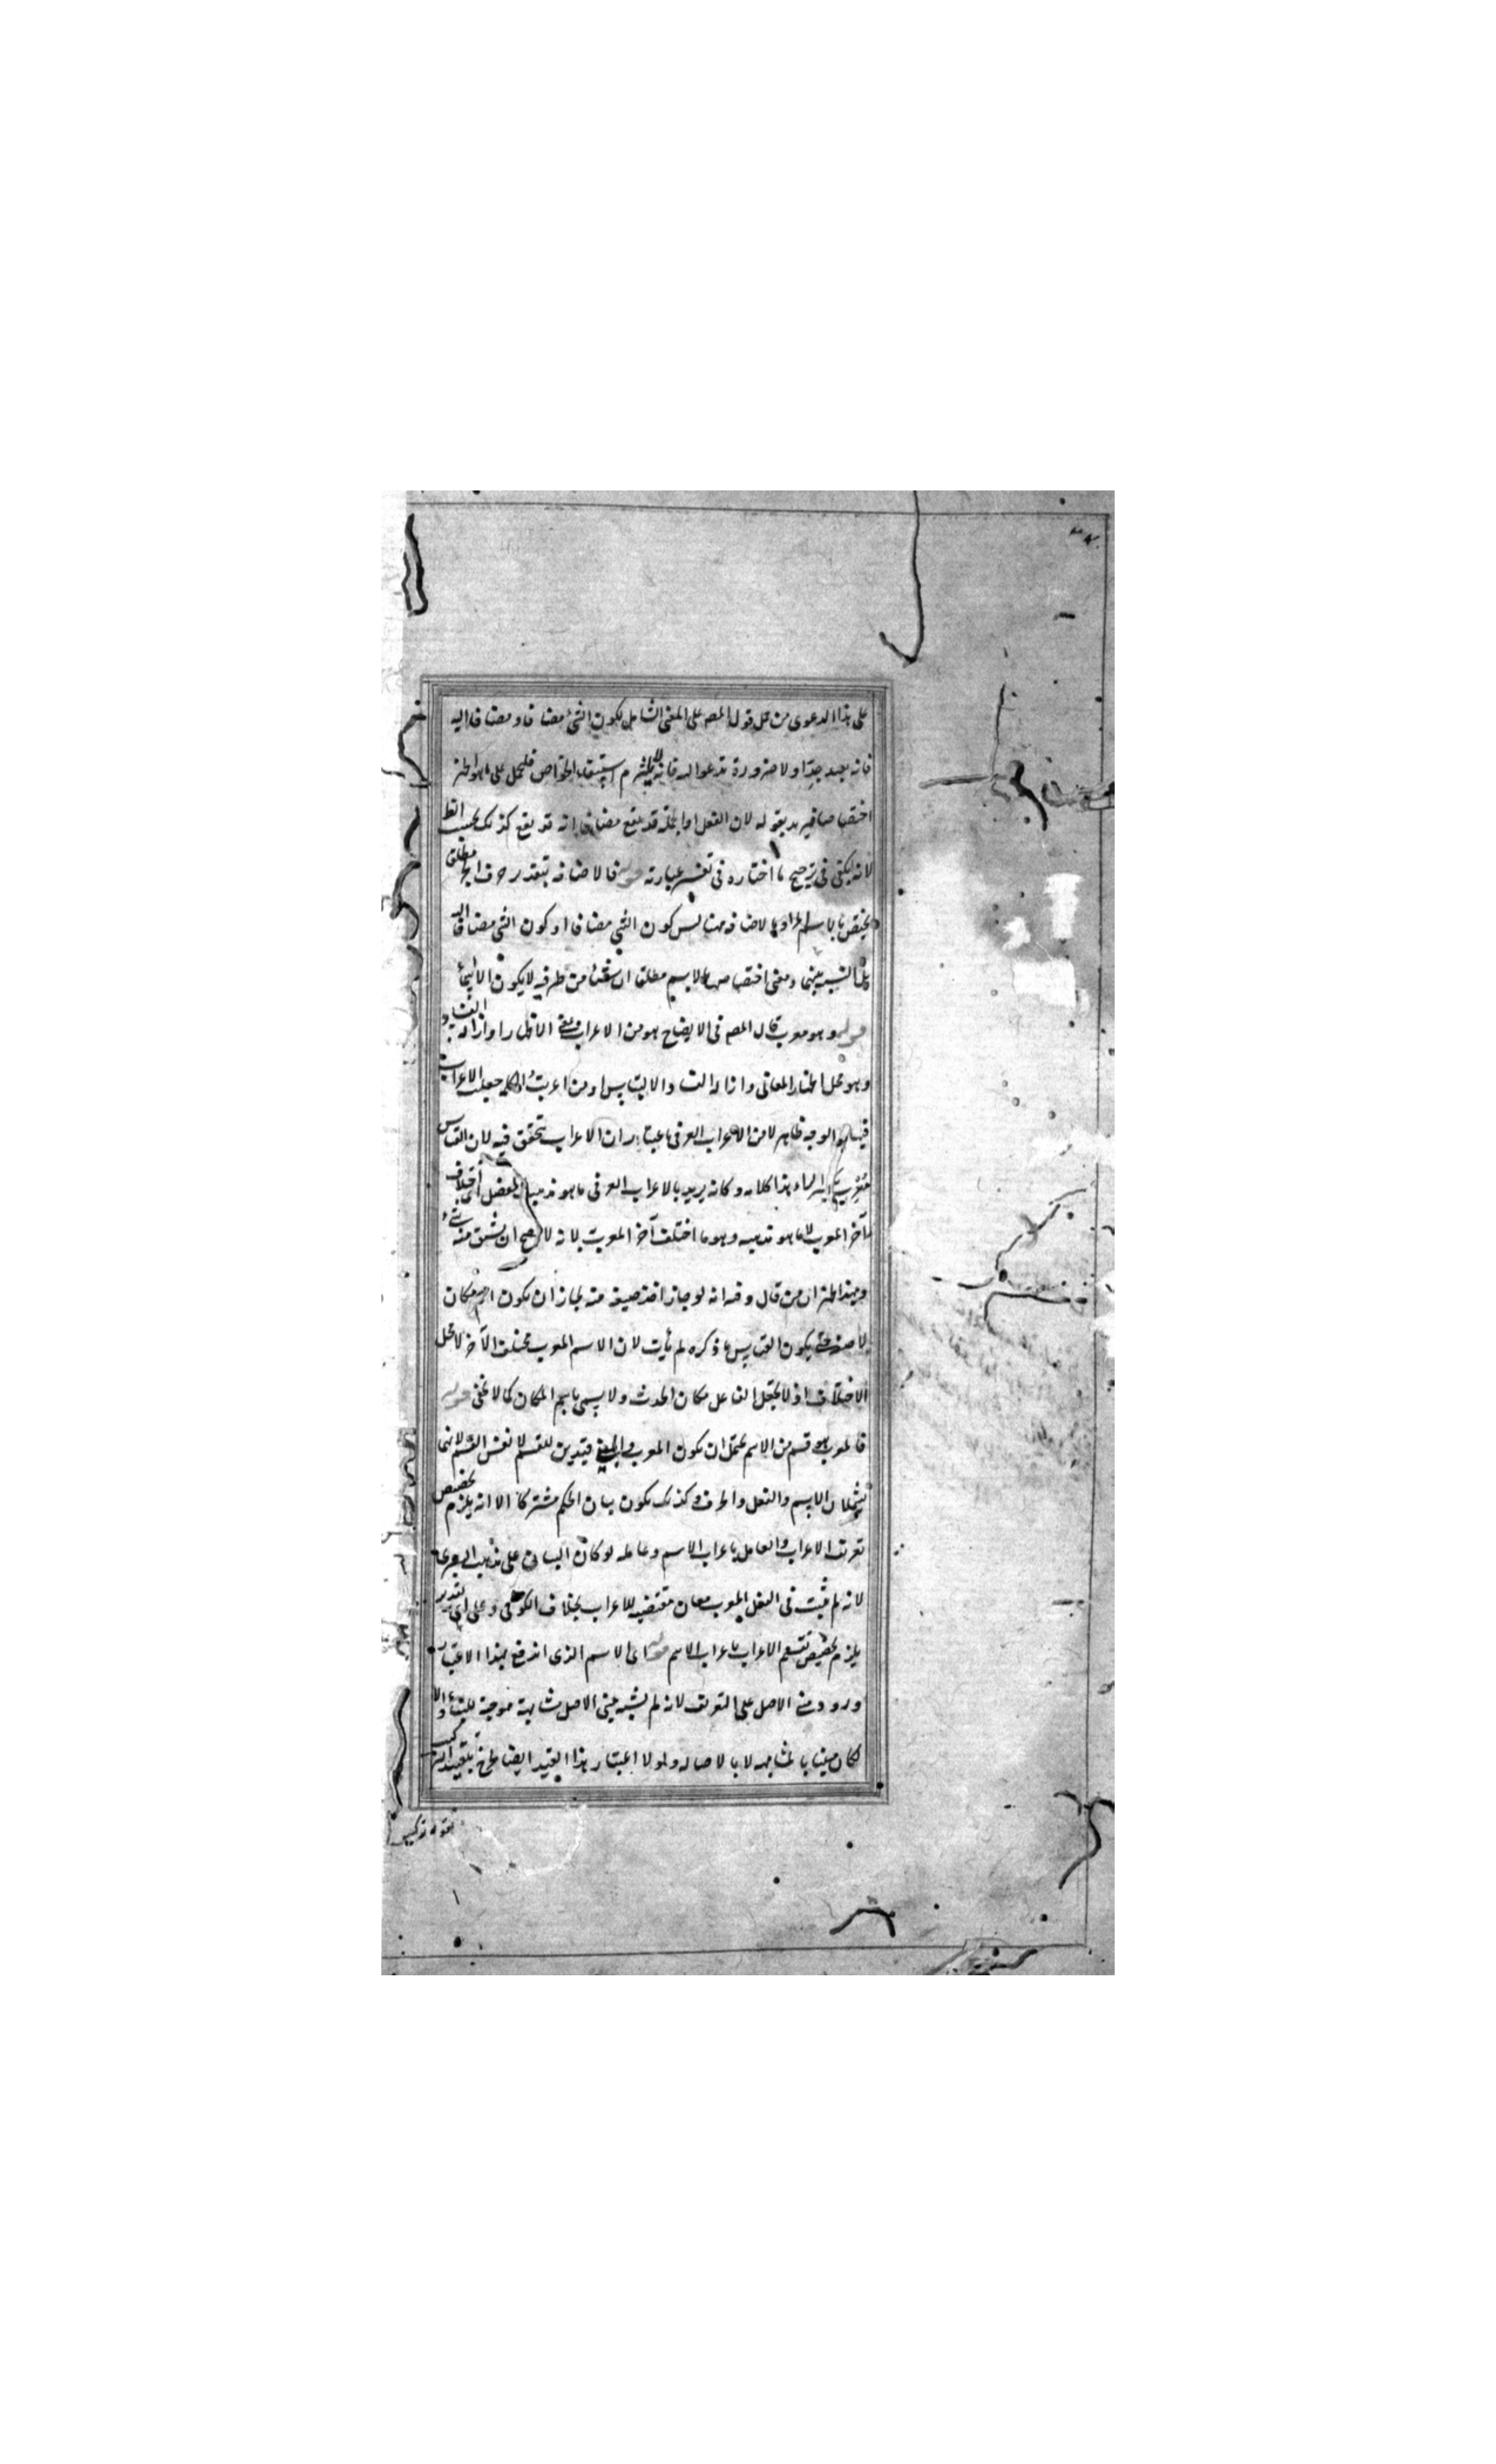 على هذا الدعوى من حمل قول المصه على المعنى الشامل لكون الشئ مضافا ومضافا اليه
فانه بعيد جدّا ولا ضرورة تدعو اليه فانه لم يلتزم استيفاء الخواص فليحمل على ما هو اظهر
اختصاصا فيه بقوله لان الفعل او الجملة قد يقع مضافا انه قد يقع كذلك بحسب الظ
لانه يكفى فى ترجيح ما اختاره فى تفسير عبارته قوله فالاضافة بتقدير حرف الجر مطلق
يختص بالاسم المراد بالاضافة هنا ليس كون الشئ مضافا او كون الشئ مضافا اليه
بل النسبة بينهما ومعنى اختصاصها بالاسم مطلقا ان شيئا من طرفيه لا يكون الا اسما
قوله وهو معرب قال المصه فى الايضاح هو من الاعراب بمعنى الاظهار او ازالة الفساد
وهو محل اظهار المعانى وازالة الفساد والالتباس او من اعربت الكلمة جعلت الاعراب
فيها والوجه ظاهر لا من الاعراب العرفى باعتبار ان الاعراب يتحقق فيه لان القياس
بالراء هذا كلامه وكانه يريد بالاعراب العرفى ما هو مذهب المفصل اى اختلاف
آخر المعرب لا ما هو مذهبه وهو ما اختلف آخر المعرب لانه لا يصح ان يشتق منه شئ
وبهذا ظهر ان من قال وفيه انه لو جاز اخذ صيغة منه لجاز ان يكون اسم مكان
لا صفة حتى يكون القياس ما ذكره لم يأت لان الاسم المعرب مختلف الآخر لا محل
الاختلاف اذ لا يجعل الفاعل مكان الحدث ولا يسمى باسم المكان كما لا يخفى قوله
فالمعرب هو قسم من الاسم يحتمل ان يكون المعرب والمبنى قيدين للقسم لا نفس القسم لانهما
يشملان الاسم والفعل والحرف وكذلك يكون بيان الحكم مشتركا الا انه يلزم تخصيص
تعريف الاعراب والعامل باعراب الاسم وعامله لو كان البيان على مذهب البصرى
لانه لم يثبت فى الفعل المعرب معان مقتضية للاعراب بخلاف الكوفى وعلى اى تقدير
يلزم تخصيص تقسيم الاعراب باعراب الاسم قوله اى الاسم الذى اندفع بهذا الاعتبار
ورود مبنى الاصل على التعريف لانه لم يشبه مبنى الاصل مشابهة موجبة للبناء والا
لكان مبنيا بالمشابهة لا بالاصالة ولولا اعتبار هذا القيد ايضا لخرج بتقييد المركب
بقوله تركيبا